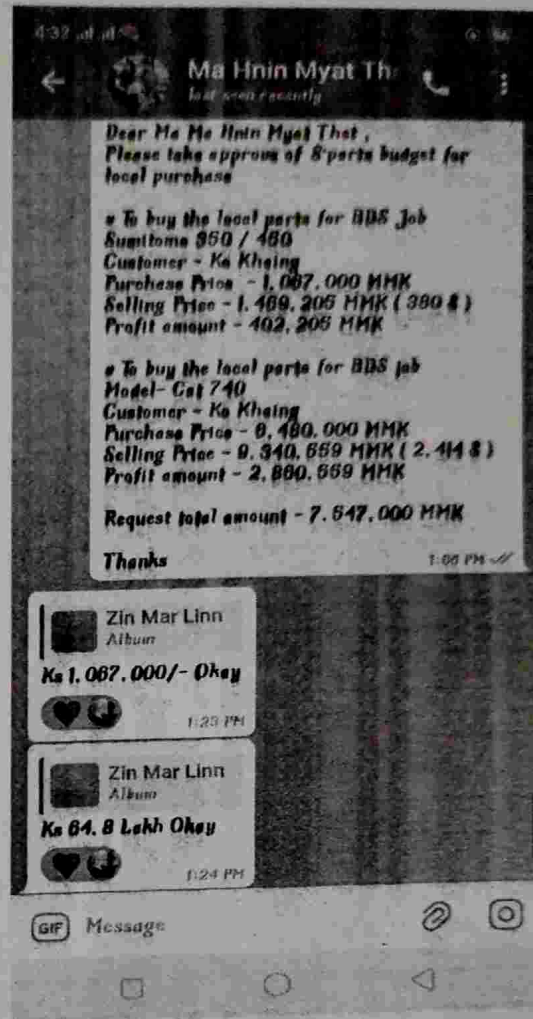 4:32
Ma Hnin Myat Th
last seen recently
Dear Ma Ma Hnin Myat Thet ,
Please take approve of 8 parts budget for
local purchase
# To buy the local parts for BDS Job
Sumitomo 350 / 460
Customer - Ko Khaing
Purchase Price - 1,067,000 MMK
Selling Price - 1,469,205 MMK ( 380 $ )
Profit amount - 402,205 MMK
# To buy the local parts for BDS job
Model- Cat 740
Customer - Ko Khaing
Purchase Price - 6,480,000 MMK
Selling Price - 9,340,559 MMK ( 2,414 $ )
Profit amount - 2,860,559 MMK
Request total amount - 7,547,000 MMK
Thanks
1:06 PM
Zin Mar Linn
Album
Ks 1,067,000/- Okay
1:23 PM
Zin Mar Linn
Album
Ks 64.8 Lakh Okay
1:24 PM
GIF Message